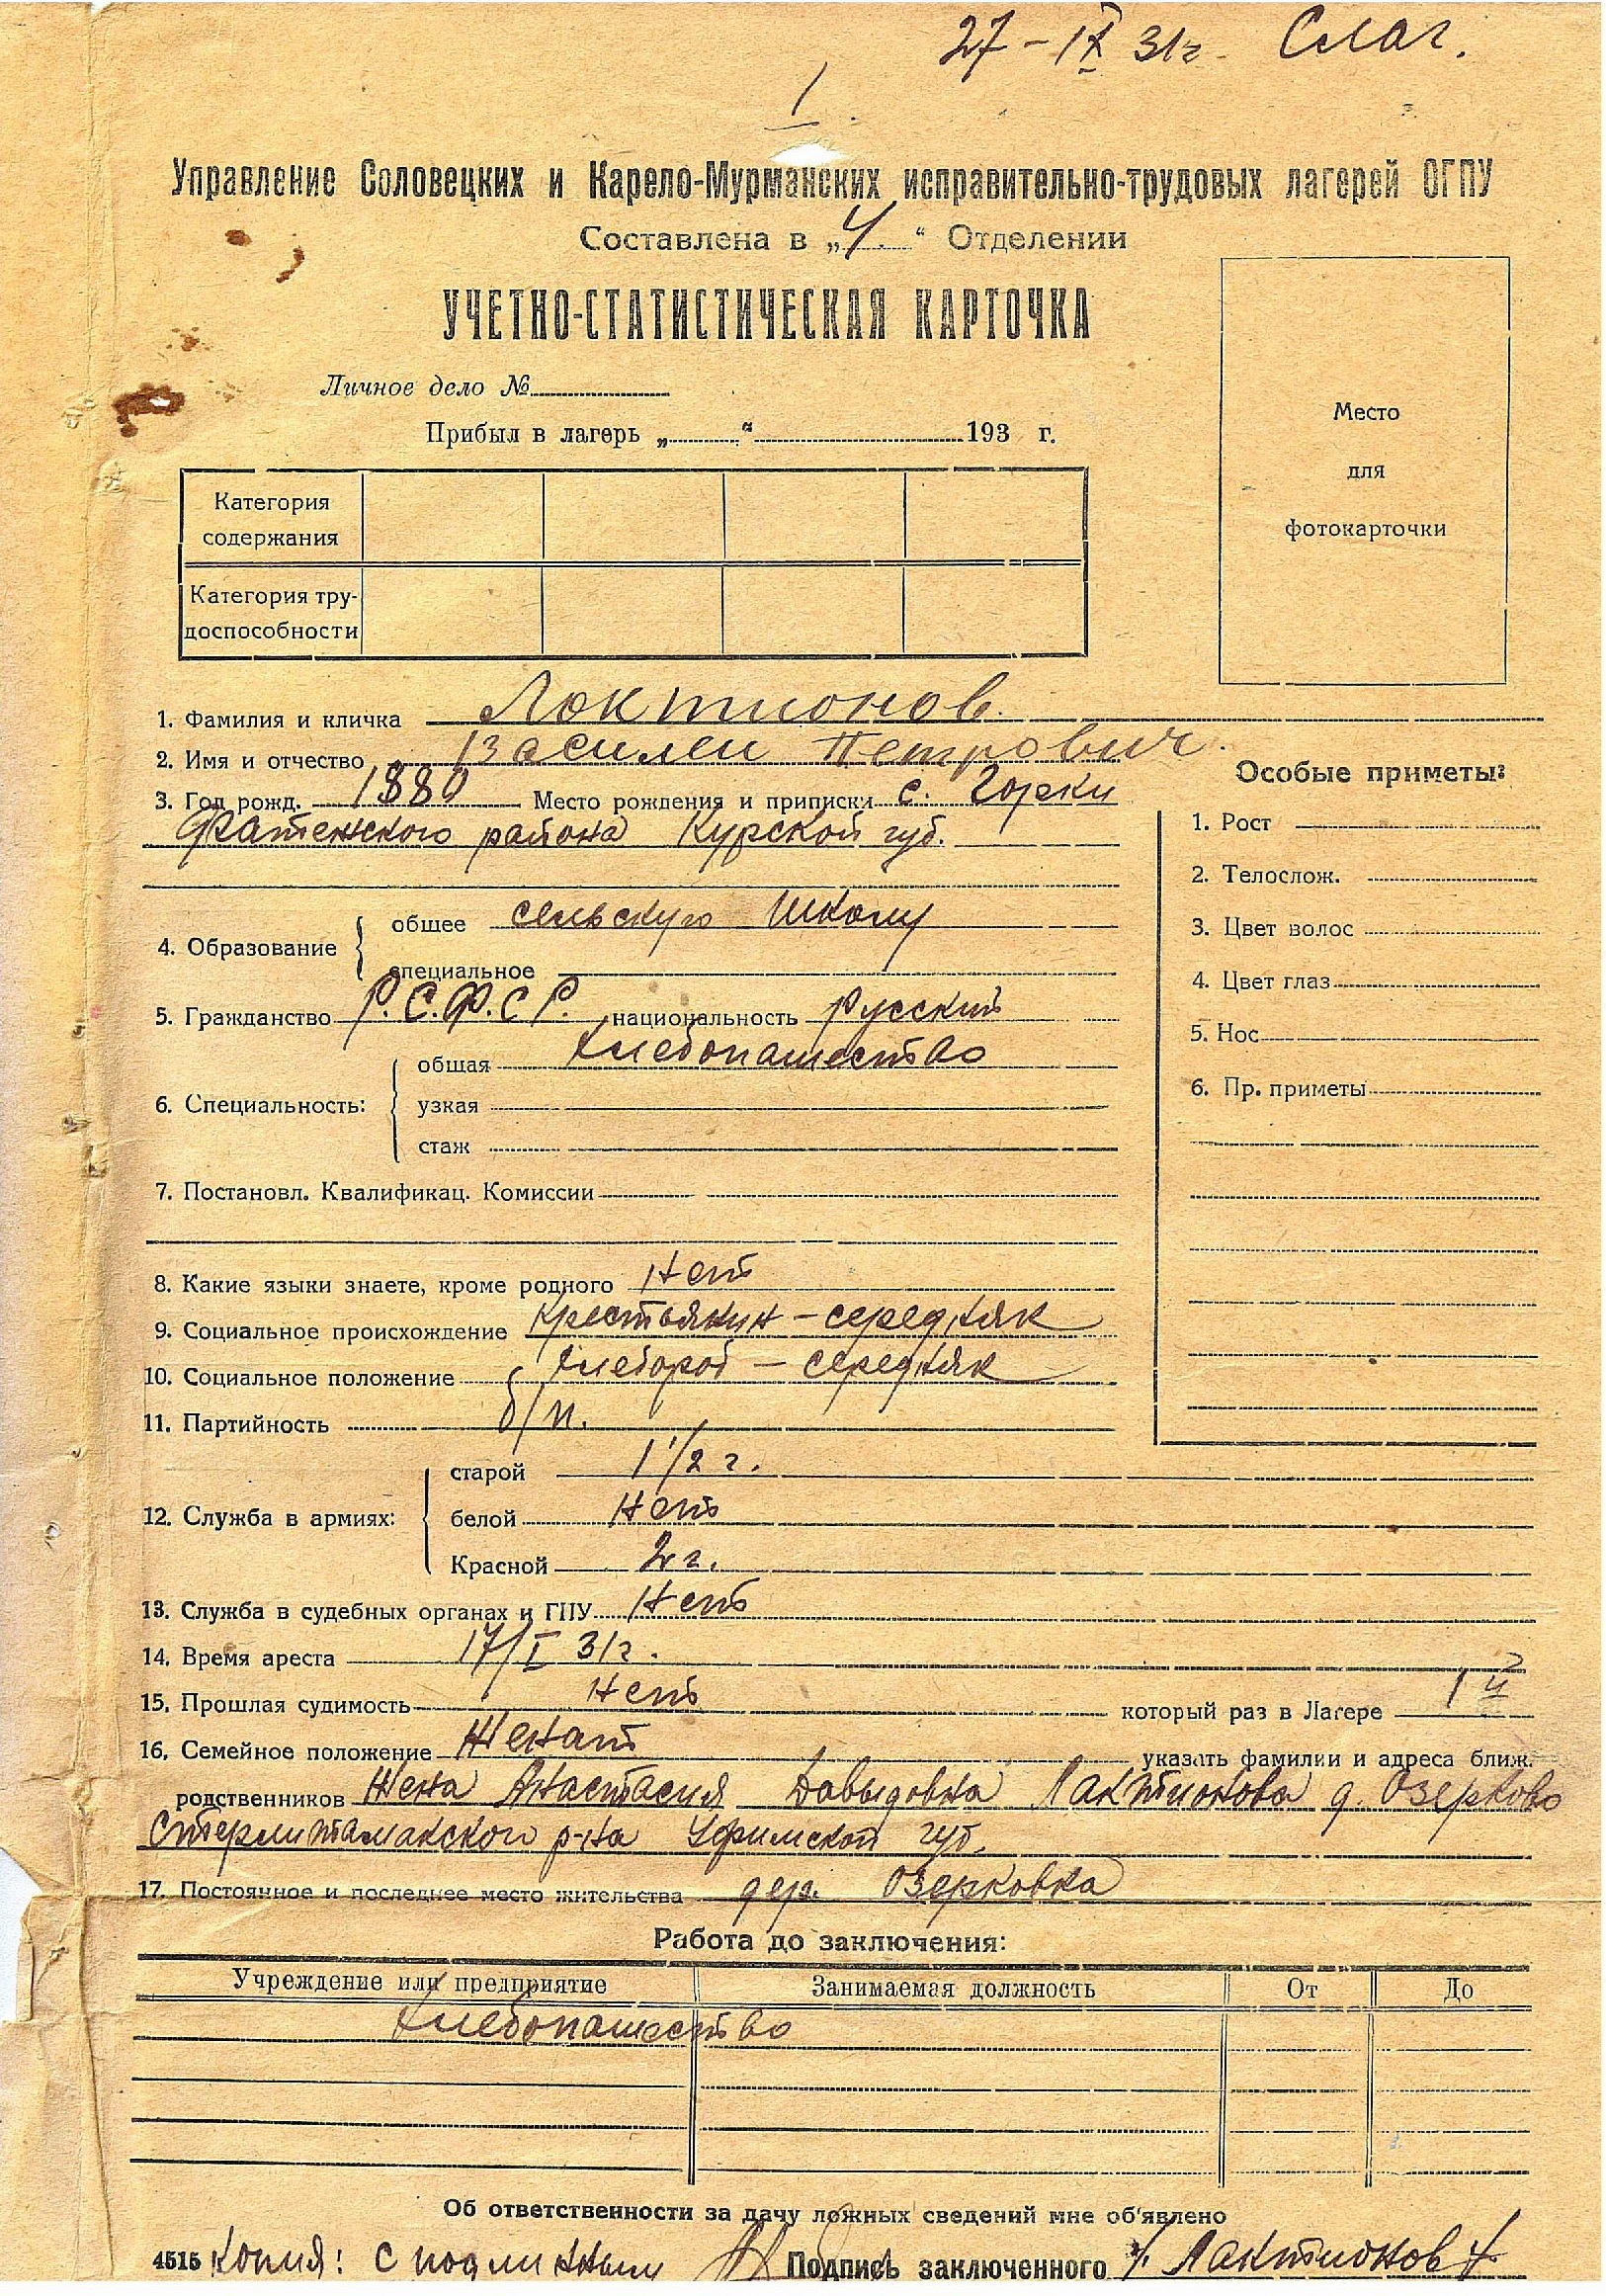 27-IX 31г. Слаг.
1.
Управление Соловецких и Карело-Мурманских исправительно-трудовых лагерей ОГПУ
Составлена в „4.“ Отделении
УЧЕТНО-СТАТИСТИЧЕСКАЯ КАРТОЧКА
Личное дело №
Прибыл в лагерь „ “ 193 г.
Место
для
фотокарточки
Категория
содержания
Категория тру-
доспособности
1. Фамилия и кличка Локтионов.
2. Имя и отчество Василеи Петрович.
3. Год рожд. 1880 Место рождения и приписки с. Горки
Фатежского района Курской губ.
4. Образование
общее сельскую школу
специальное
5. Гражданство Р.С.Ф.С.Р. национальность Русский
6. Специальность:
общая Хлебопашество
узкая
стаж
7. Постановл. Квалификац. Комиссии
Особые приметы:
1. Рост
2. Телослож.
3. Цвет волос
4. Цвет глаз
5. Нос
6. Пр. приметы
8. Какие языки знаете, кроме родного Нет
9. Социальное происхождение Крестьянин - середняк
10. Социальное положение Хлебороб - середняк
11. Партийность б/п.
12. Служба в армиях:
старой 1 1/2 г.
белой Нет
Красной 2 г.
13. Служба в судебных органах и ГПУ Нет
14. Время ареста 17/I 31г.
15. Прошлая судимость Нет который раз в Лагере 1й
16. Семейное положение Женат указать фамилии и адреса ближ.
родственников Жена Анастасия Давыдовна Лактионова д. Озерково
Стерлитамакского р-на Уфимской губ.
17. Постоянное и последнее место жительства дер. Озерковка
Работа до заключения:
Учреждение или предприятие Занимаемая должность От До
Хлебопашество
Об ответственности за дачу ложных сведений мне об'явлено
4515 Копия: с подлинным Подпись заключенного /Лактионов/